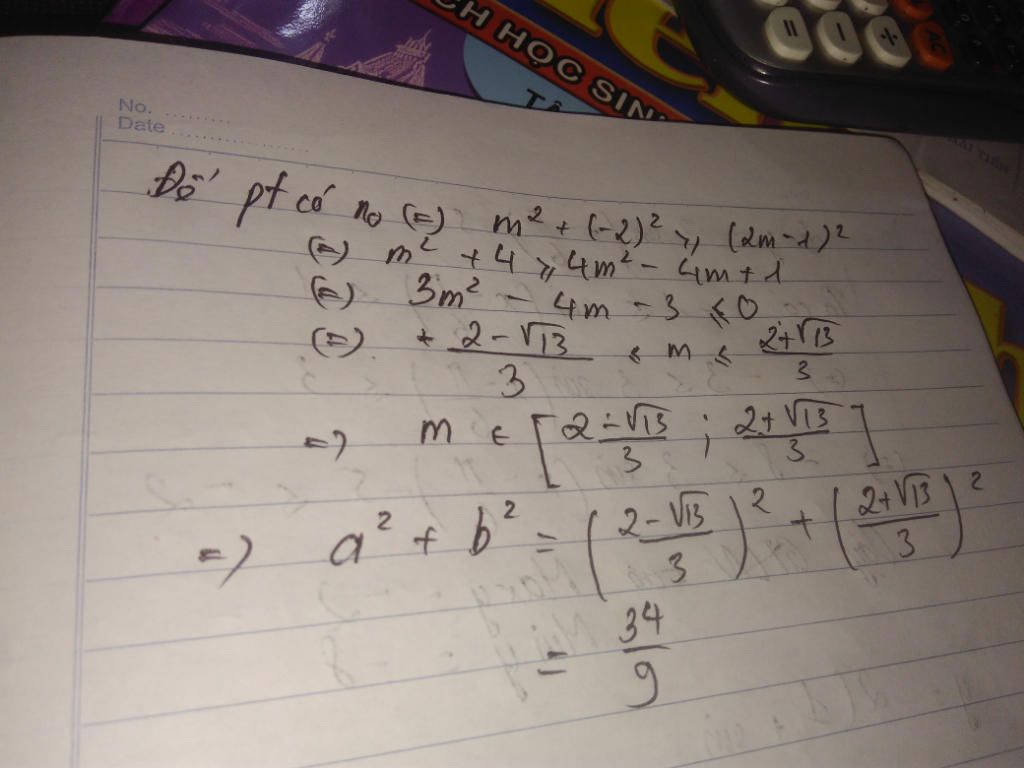 ÁCH HỌC SINH
TÂ
= − ÷ AC
No.
Date
Để pt có no (=) m² + (-2)² ⩾ (2m-1)²
(=) m² + 4 ⩾ 4m² - 4m + 1
(=) 3m² - 4m - 3 ⩽ 0
(=) + (2-√13)/3 ⩽ m ⩽ (2+√13)/3
=) m ∈ [(2-√13)/3 ; (2+√13)/3]
=) a² + b² = ((2-√13)/3)² + ((2+√13)/3)²
= 34/9